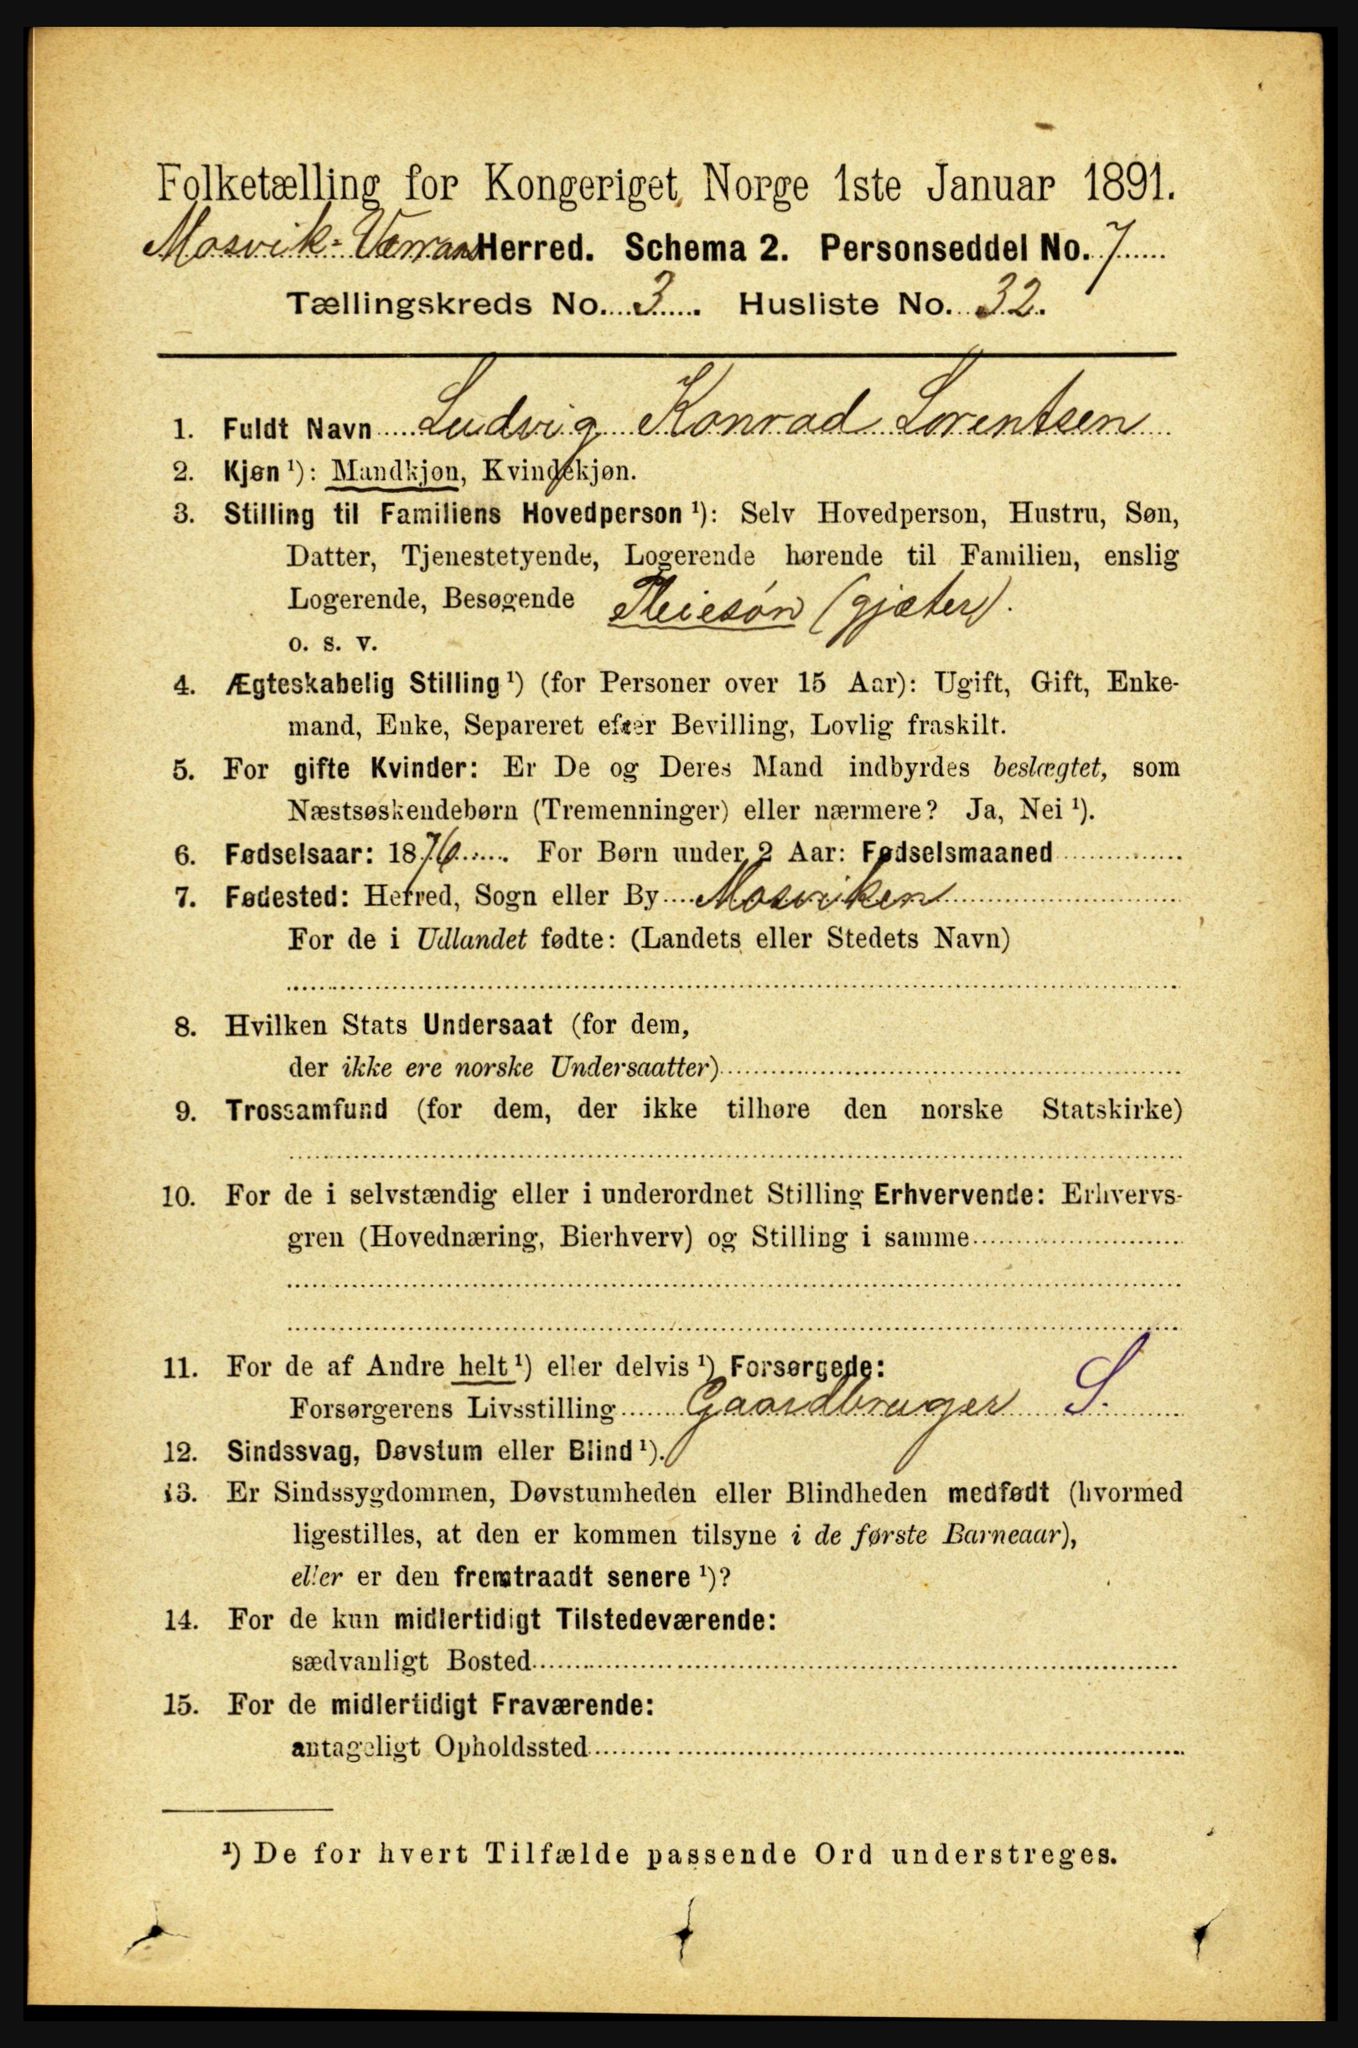 Folketælling for Kongeriget Norge 1ste Januar 1891.
Mosvik-Værran Herred. Schema 2. Personseddel No. 7
Tællingskreds No. 3. Husliste No. 32.
1. Fuldt Navn Ludvig Konrad Lorentsen
2. Kjøn ¹): Mandkjøn, Kvindekjøn.
3. Stilling til Familiens Hovedperson ¹): Selv Hovedperson, Hustru, Søn,
Datter, Tjenestetyende, Logerende hørende til Familien, enslig
Logerende, Besøgende Pleiesøn (gjæter).
o. s. v.
4. Ægteskabelig Stilling ¹) (for Personer over 15 Aar): Ugift, Gift, Enke-
mand, Enke, Separeret efter Bevilling, Lovlig fraskilt.
5. For gifte Kvinder: Er De og Deres Mand indbyrdes beslægtet, som
Næstsøskendebørn (Tremenninger) eller nærmere? Ja, Nei ¹).
6. Fødselsaar: 1876. For Børn under 2 Aar: Fødselsmaaned
7. Fødested: Herred, Sogn eller By Mosviken
For de i Udlandet fødte: (Landets eller Stedets Navn)
8. Hvilken Stats Undersaat (for dem,
der ikke ere norske Undersaatter)
9. Trossamfund (for dem, der ikke tilhøre den norske Statskirke)
10. For de i selvstændig eller i underordnet Stilling Erhvervende: Erhvervs-
gren (Hovednæring, Bierhverv) og Stilling i samme
11. For de af Andre helt ¹) eller delvis ¹) Forsørgede:
Forsørgerens Livsstilling Gaardbruger S.
12. Sindssvag, Døvstum eller Blind ¹).
13. Er Sindssygdommen, Døvstumheden eller Blindheden medfødt (hvormed
ligestilles, at den er kommen tilsyne i de første Barneaar),
eller er den fremtraadt senere ¹)?
14. For de kun midlertidigt Tilstedeværende:
sædvanligt Bosted
15. For de midlertidigt Fraværende:
antageligt Opholdssted
¹) De for hvert Tilfælde passende Ord understreges.